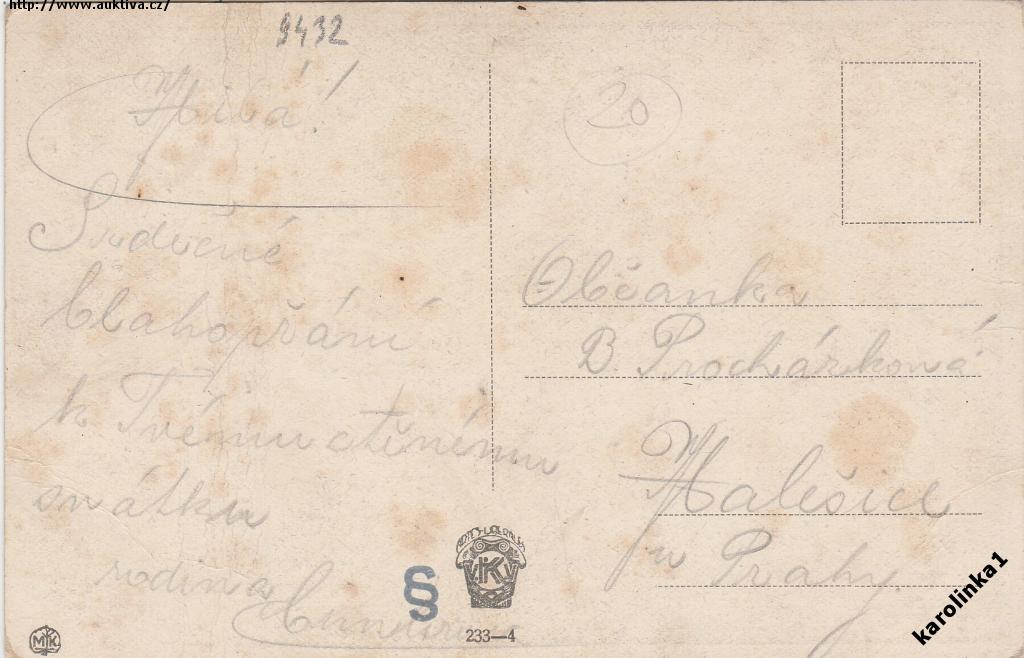 http://www.auktiva.cz/
9432
Milá!
Srdečné
blahopřání
k Tvému ctěnému
svátku
rodina
20
Občanka
B. Procházková
Malešice
u Prahy
VKKV
233—4
MK
karolinka1